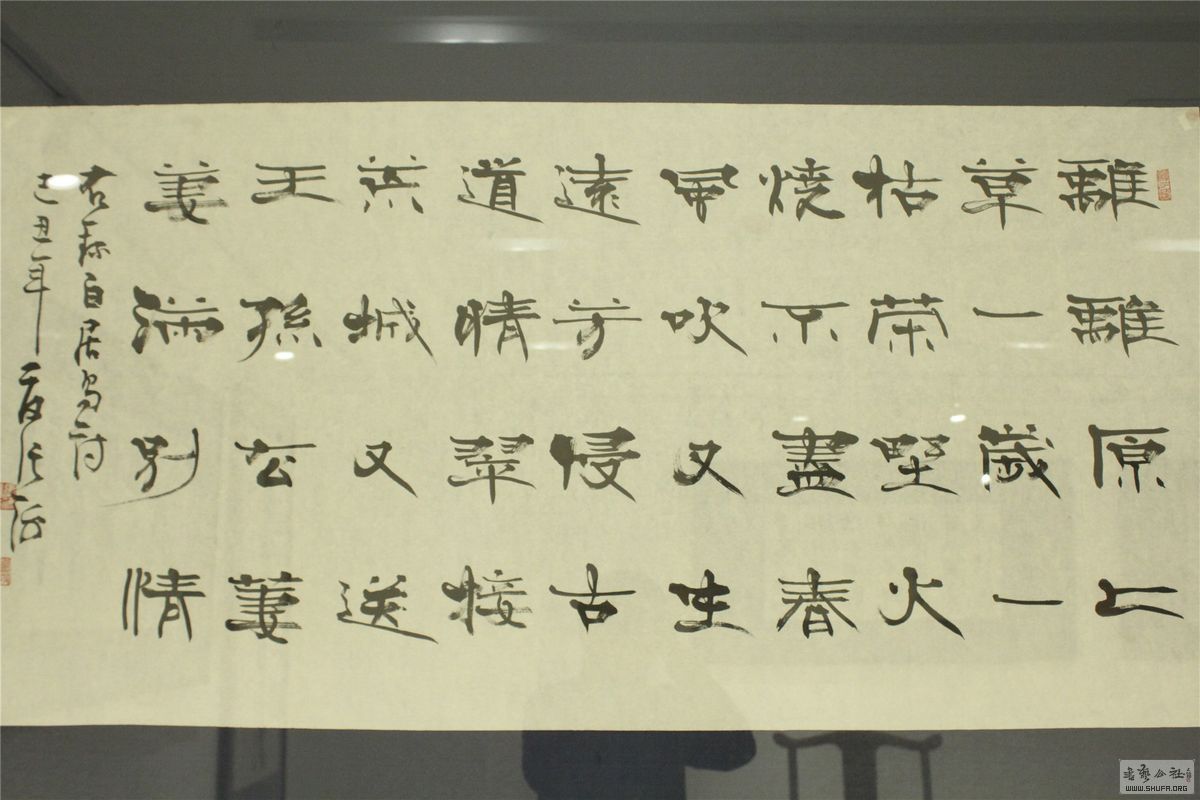 離離原上
草一歲一
枯榮野火
燒不盡春
風吹又生
遠芳侵古
道情翠接
荒城又送
王孫去萋
萋滿別情
右録白居易詩
己丑年夏
书艺公社
WWW.SHUFA.ORG